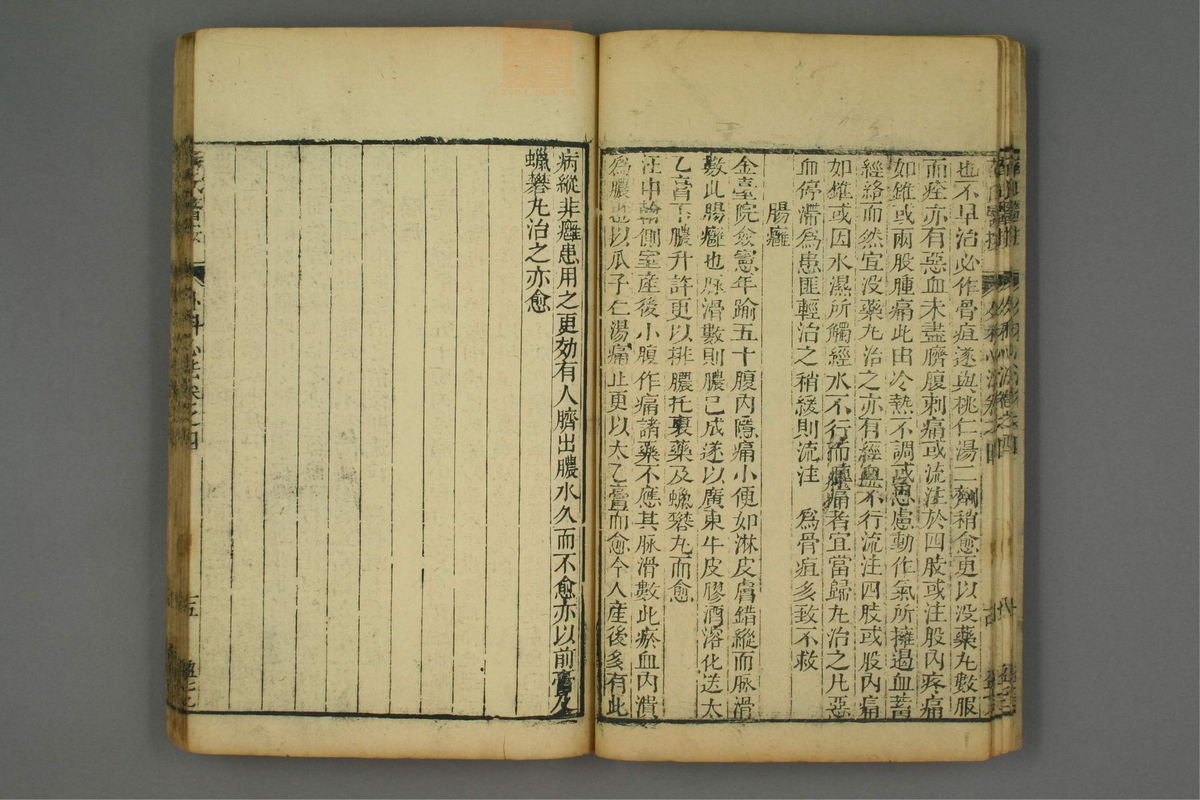 也不早治必作骨疽遂與桃仁湯二劑稍愈更以没藥丸數服
而痊亦有惡血未盡臍腹刺痛或流注於四肢或注股內疼痛
如錐或兩股腫痛此由冷熱不調或思慮動作氣所擁遏血蓄
經絡而然宜没藥丸治之亦有經血不行流注四肢或股內痛
如錐或因水濕所觸經水不行而腫痛者宜當歸丸治之凡惡
血停滯爲患匪輕治之稍緩則流注 爲骨疽多致不救
腸癰
金臺院僉憲年踰五十腹內隱痛小便如淋皮膚錯縱而脉滑
數此腸癰也脉滑數則膿已成遂以廣東牛皮膠酒溶化送太
乙膏下膿升許更以排膿托裏藥及蠟礬丸而愈
汪中翰側室産後小腹作痛諸藥不應其脉滑數此瘀血內潰
爲膿也以瓜子仁湯痛止更以太乙膏而愈今人産後多有此
病縱非癰患用之更効有人臍出膿水久而不愈亦以前膏及
蠟礬丸治之亦愈
外科心法卷之四